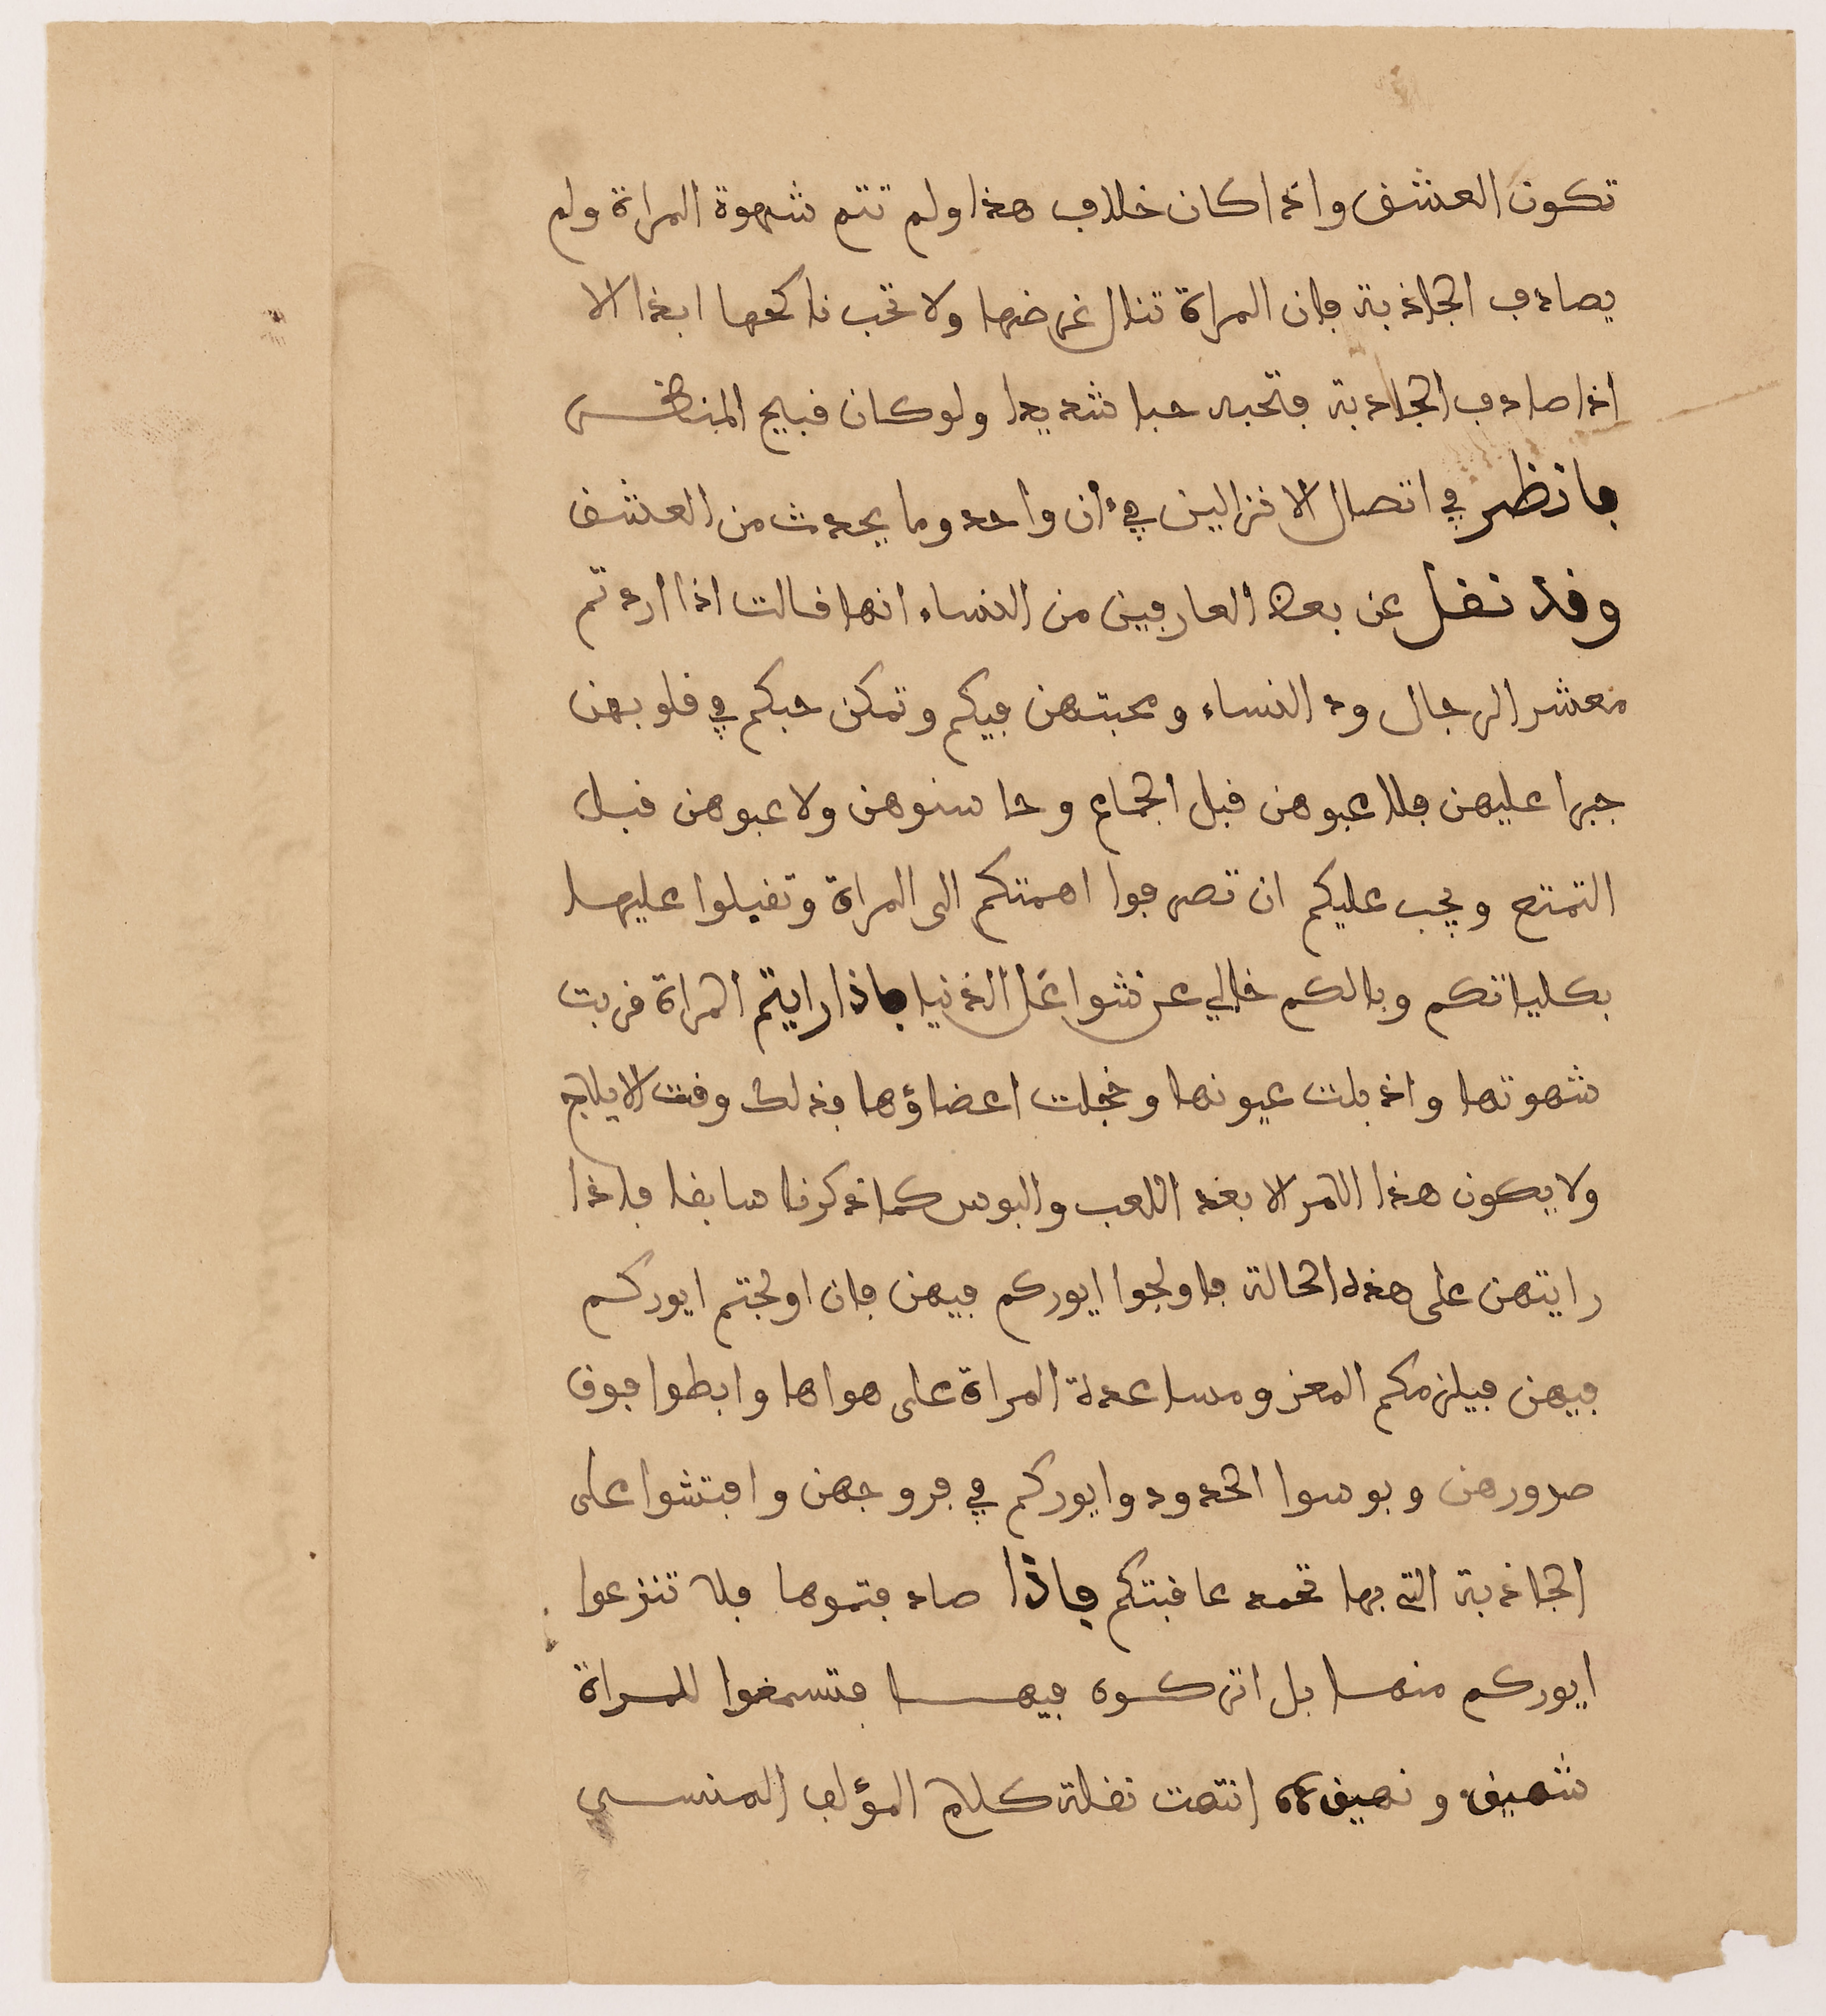 تكون العشق واذا كان خلاف هذا ولم تتم شهوة المراة ولم
يصادف الجاذبة فان المراة تنال غرضها ولا تحب ناكحها ابدا الا
اذا صادف الجاذبة فتحبه حبا شديدا ولو كان قبيح المنظر
فانظر في اتصال الانزالين في ءان واحد وما يحدث من العشق
وقد نقل عن بعض العارفين من النساء انها قالت اذا اردتم
معشر الرجال ود النساء ومحبتهن فيكم وتمكن حبكم في قلوبهن
جبرا عليهن فلاعبوهن قبل الجماع وحاسنوهن ولاعبوهن قبل
التمتع ويجب عليكم ان تصرفوا اهمتكم الى المراة وتقبلوا عليها
بكلياتكم وبالكم خالي عن شواغل الدنيا فاذا رايتم المراة قربت
شهوتها واذبلت عيونها وخجلت اعضاؤها فذلك وقت الايلاج
ولا يكون هذا الامر الا بعد اللعب والبوس كما ذكرنا سابقا فاذا
رايتهن على هذه الحالة فاولجوا ايوركم فيهن فان اولجتم ايوركم
فيهن فيلزمكم المعز ومساعدة المراة على هواها وابطوا فوق
صدورهن وبوسوا الخدود وايوركم في فروجهن وافتشوا على
الجاذبة التي بها تحمد عاقبتكم فاذا صادفتموها فلا تنزعوا
ايوركم منها بل اتركوه فيها فتسمعوا للمراة
شهيق ونهيق انتهت نقلة كلام المؤلف المنسي